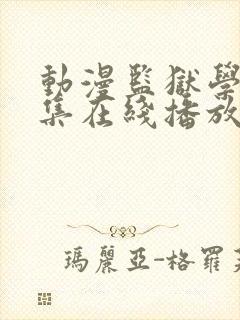 動漫監獄學
集在綫播放
瑪麗亞-格羅